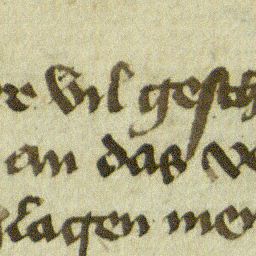 re vil gesch
an das vo
slagen men